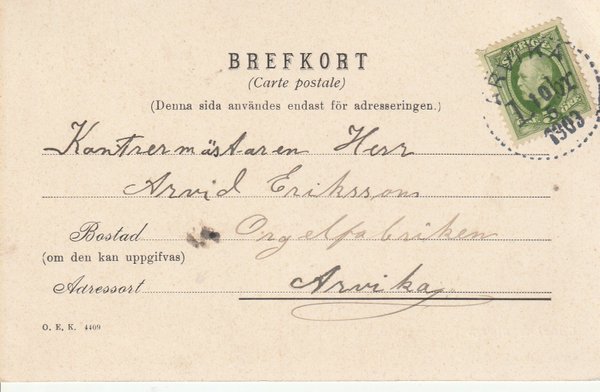 BREFKORT
(Carte postale)
(Denna sida användes endast för adresseringen.)
SVERIGE
ARVIKA
1903
Kontrermästaren Herr
Arvid Erikssons
Bostad Orgelfabriken
(om den kan uppgifvas)
Adressort Arvika
O. E. K. 4409